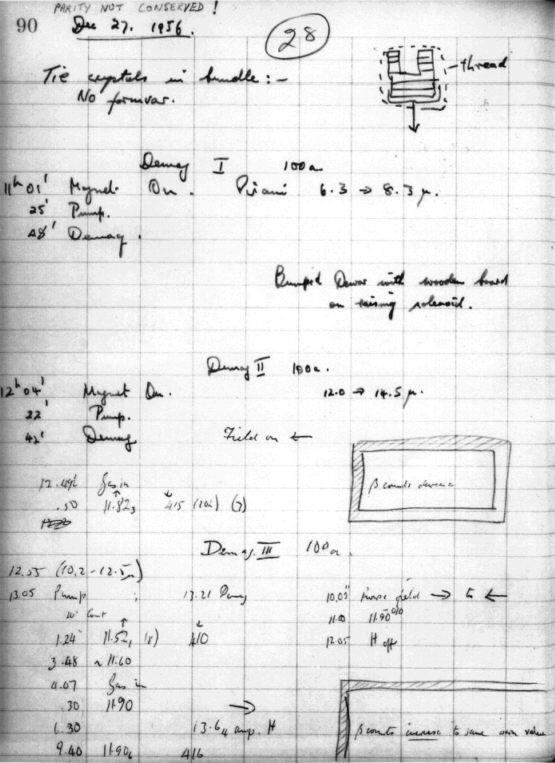 PARITY NOT CONSERVED !
90 Dec 27. 1956. 28
Tie crystals in bundle :-
No formvar.
thread
Demag I 100a.
11h 01' Magnet On. Pirani 6.3 → 8.3 μ.
25' Pump.
48' Demag.
Bumped Dewar with wooden board
on raising solenoid.
Demag II 100a.
12h 04' Magnet On. 12.0 → 14.5 μ.
22' Pump.
42' Demag Field on ←
12.49½ Gas in
.50 11.823 415 (7)
β counts decrease
Demag. III 100a.
12.55 (10.2-12.5μ)
13.05 Pump 13.21 Demag
10.05 field → to ←
11.00 11.90
1.24 11.521 410
12.05 H off
3.48 ~11.60
4.07 Gas in
.30 11.90 →
6.30 13.64 amp. H
9.40 11.906 416
β counts increase to same own value